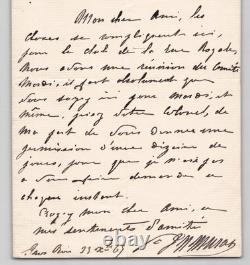 Mon cher Ami, les
choses se compliquent ici,
pour le club de la rue Royale,
nous avons une réunion du Comité
Mardi, il faut absolument que
vous soyez ici pour Mardi, et
même, priez votre Colonel, de
ma part de vous donner une
permission d'une dizaine de
jours, pour que je n'ai pas
à vous faire demander à
chaque instant.
Croyez mon cher Ami, à
mes sentiments d'amitié
Murat
23 67